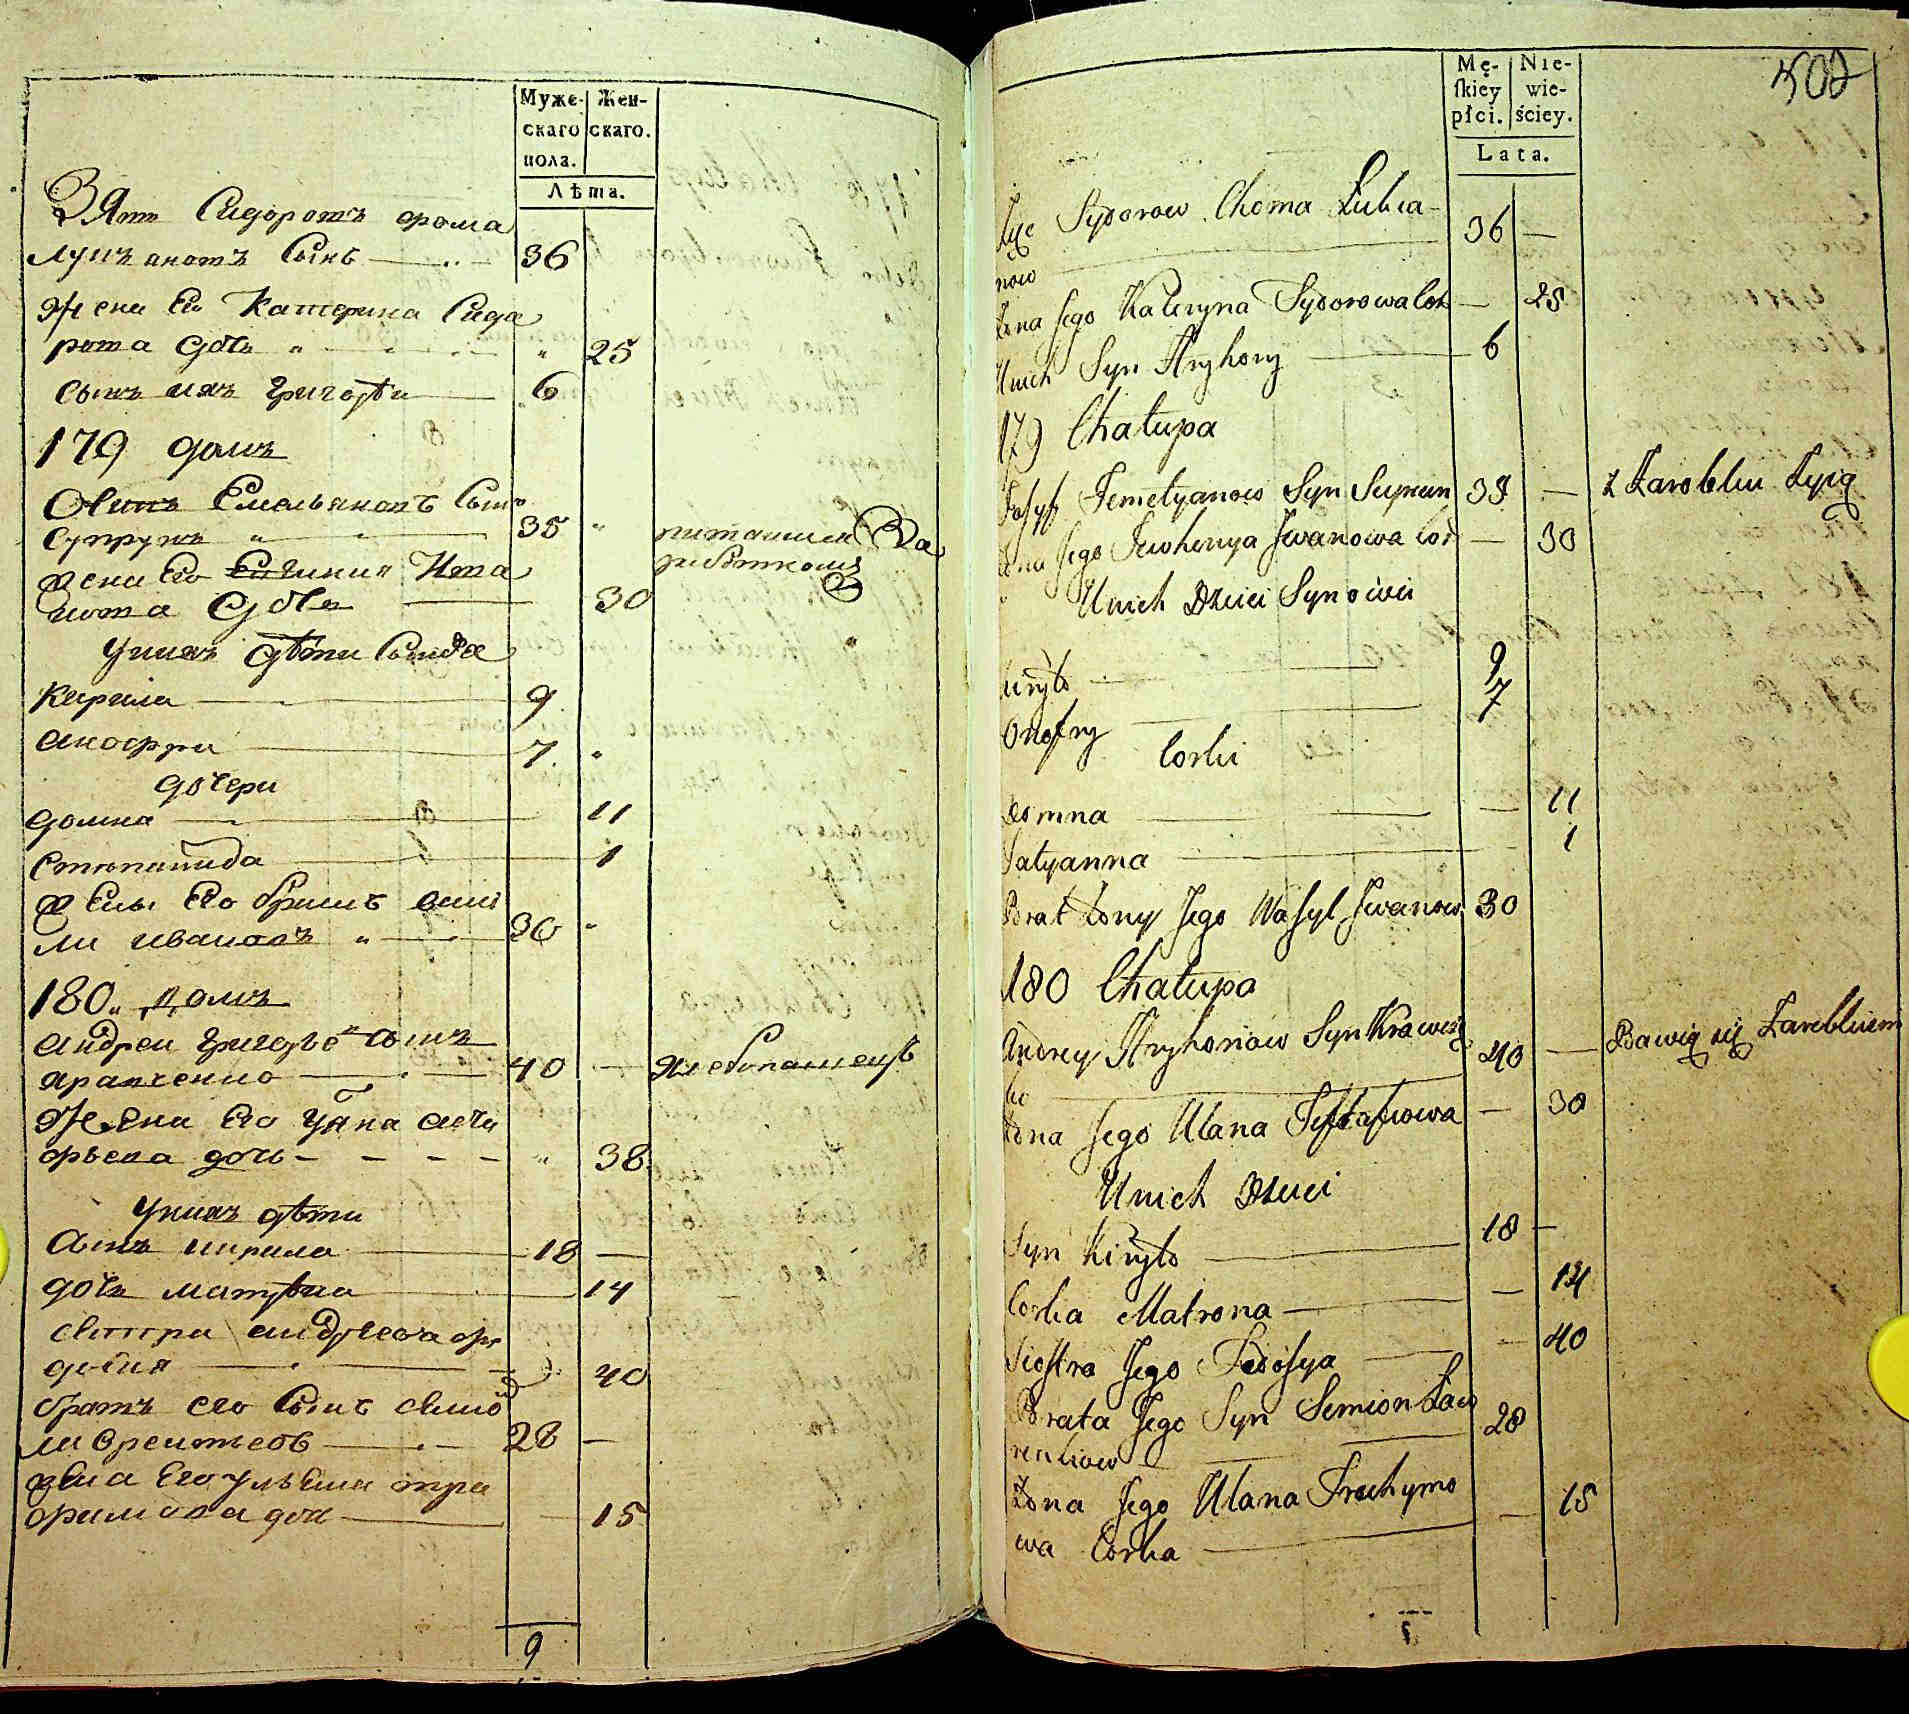 Муже-
скаго
пола.
Жен-
скаго.
Лѣта.
Зять Сидоровъ фома
Лукъяновъ Сынъ 36
Жена Его Катерина Сидо
рова дочь 25
Сынъ ихъ Григорѣи 6
179 домъ
Осипъ Емельяновъ Сынъ
Супрунъ 35
жена Его Ива
нова дочь 30
У нихъ дѣти Сынов
Кирила 9
анофри 7
дочери
домна 11
1
жены Его братъ васи
ли ивановъ 30
180 домъ
андреи григорьевъ сынъ
кравченко 40
Жена Его Уляна
дочь 38
У нихъ дѣти
Сынъ кирила 18
дочь матрѣна 14
сестра андреева фе
досия 40
братъ его Сынъ семіо
28
жена Его ульяна тро
фимова доч 15
9
502
Mę-
skiey
płci.
Nie-
wie-
ściey.
Lata.
Zięc Sydorow Choma Łukia
now 36 —
Żona Jego Kateryna Sydorowa Cór — 25
Unich Syn Hryhory 6
179 Chałupa
Josyf Jemelyanow Syn Suprun 35 — z Zarobku Żyią
Żona Jego Jewhenya Jwanowa Cór — 30
Unich Dzieci Synowie
Kiryło 9
Onofry 7
Corki
Domna — 11
Tatyanna 1
Brat Żony Jego Wasyl Jwanow 30
180 Chałupa
Andrey Hryhoriow Syn Krawczę
ko 40 — Bawią się Zarobkiem
Żona Jego Ulana — 30
Unich Dzieci
Syn Kiryło 18 —
Corka Matrona — 14
Siostra Jego Fedosya — 40
Brata Jego Syn Semion Ław
renkiow 28
Żona Jego Ulana Trochymo
wa Corka — 15